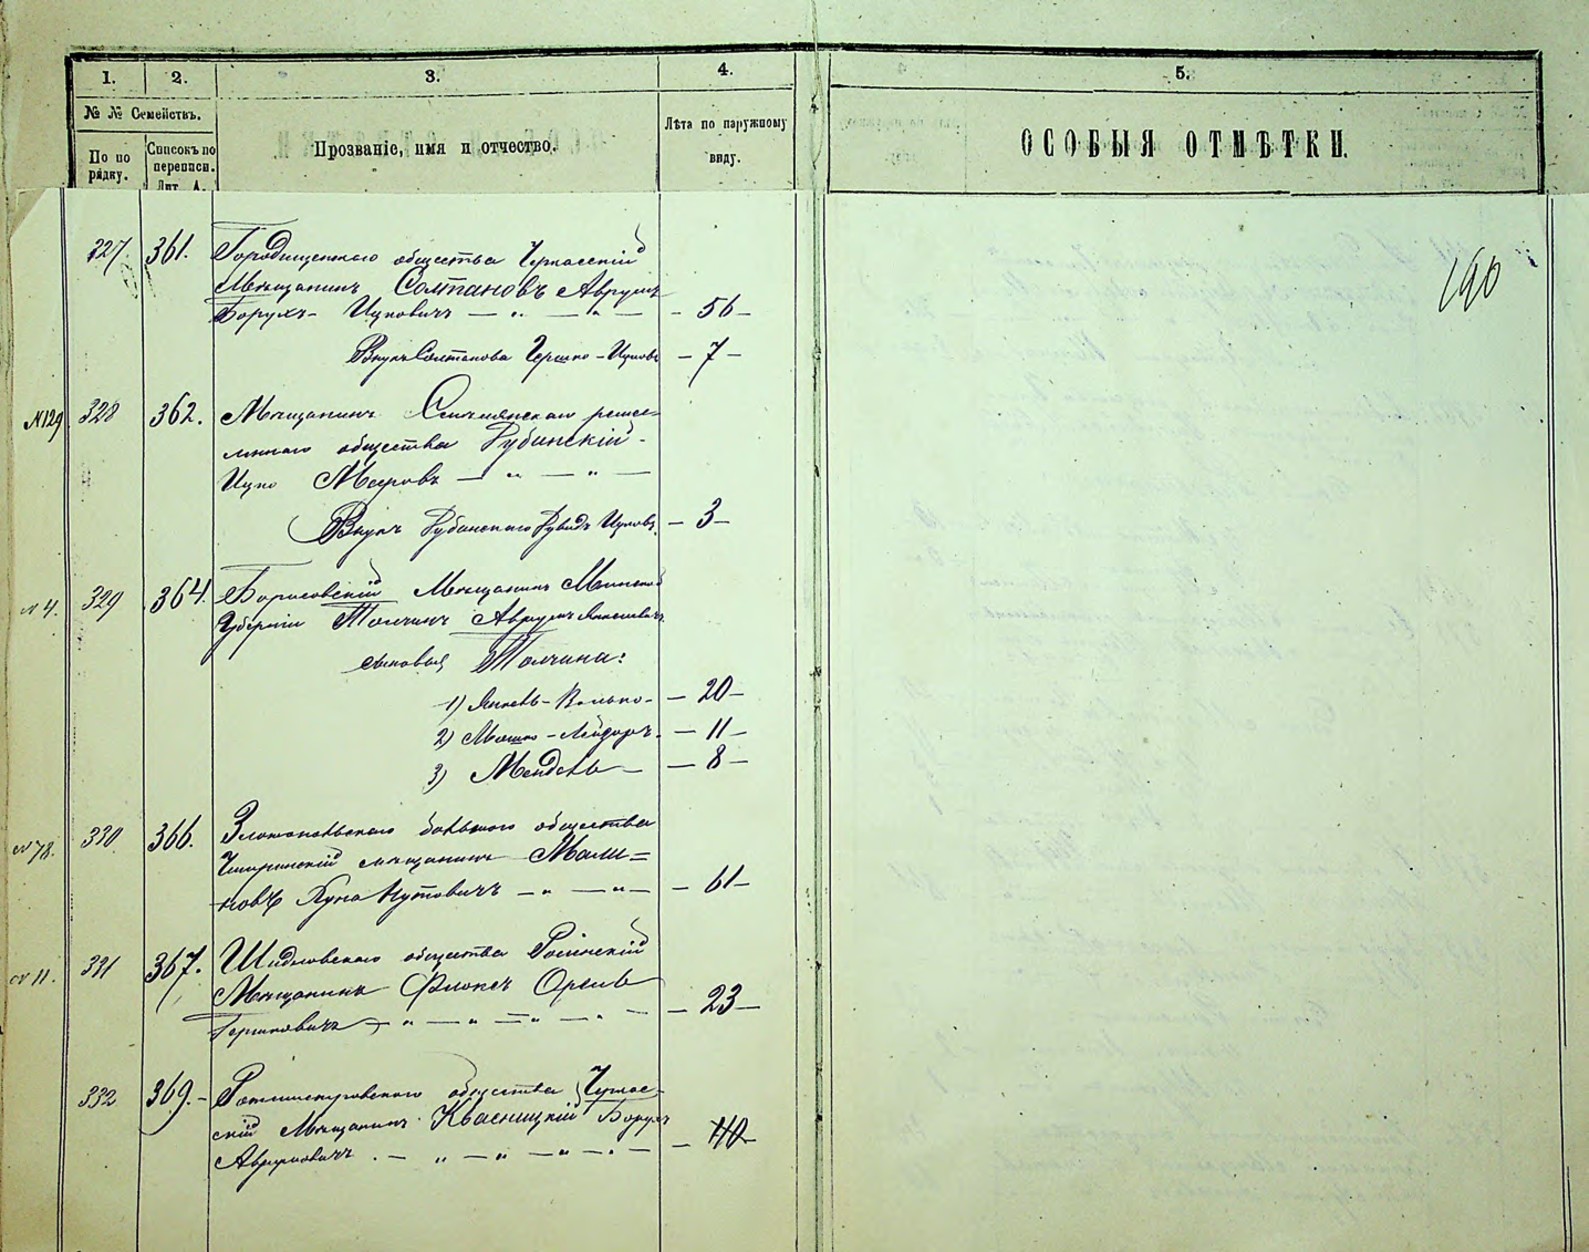 1.
2.
3.
4.
5.
№ № Семействъ.
По по рядку.
Списокъ по переписи. Лит. А.
Прозваніе, имя и отчество.
Лѣта по наружному виду.
ОСОБЫЯ ОТМѢТКИ.
190
327 361. Городищенскаго общества Черкасскій
Мѣщанинъ Солтановъ Аврумъ
Борухъ- Ицковичъ — „ — „ — - 56 -
Внукъ Солтанова Гершко - Ицковъ - 7 -
№129 328 362. Мѣщанинъ ремес-
леннаго общества Рубинскій -
Ицко Мееровъ — „ — „ —
Внукъ Рубинскаго Рувидъ Ицковъ. - 3 -
№ 4. 329 364. Борисовскій Мѣщанинъ Минской
Губерніи Толчинъ Аврумъ Янкелевичъ
сыновья Толчина:
1) Янкель - Волько - - 20 -
2) Мошко - Лейзоръ. - 11 -
3) Мендель — - 8 -
№ 78. 330 366. Златопольскаго большого общества
Чигиринскій мѣщанинъ Мали=
новъ Нутовичъ — „ — „ — - 61 -
№ 11. 331 367. общества
Мѣщанинъ Орель
Гершковичъ — „ — „ — „ — „ — - 23 -
332 369. - Ротмистровскаго общества Черкас-
скій Мѣщанинъ Квасницкій Борухъ
Аврумовичъ . — „ — „ — „ — „ — - 40 -